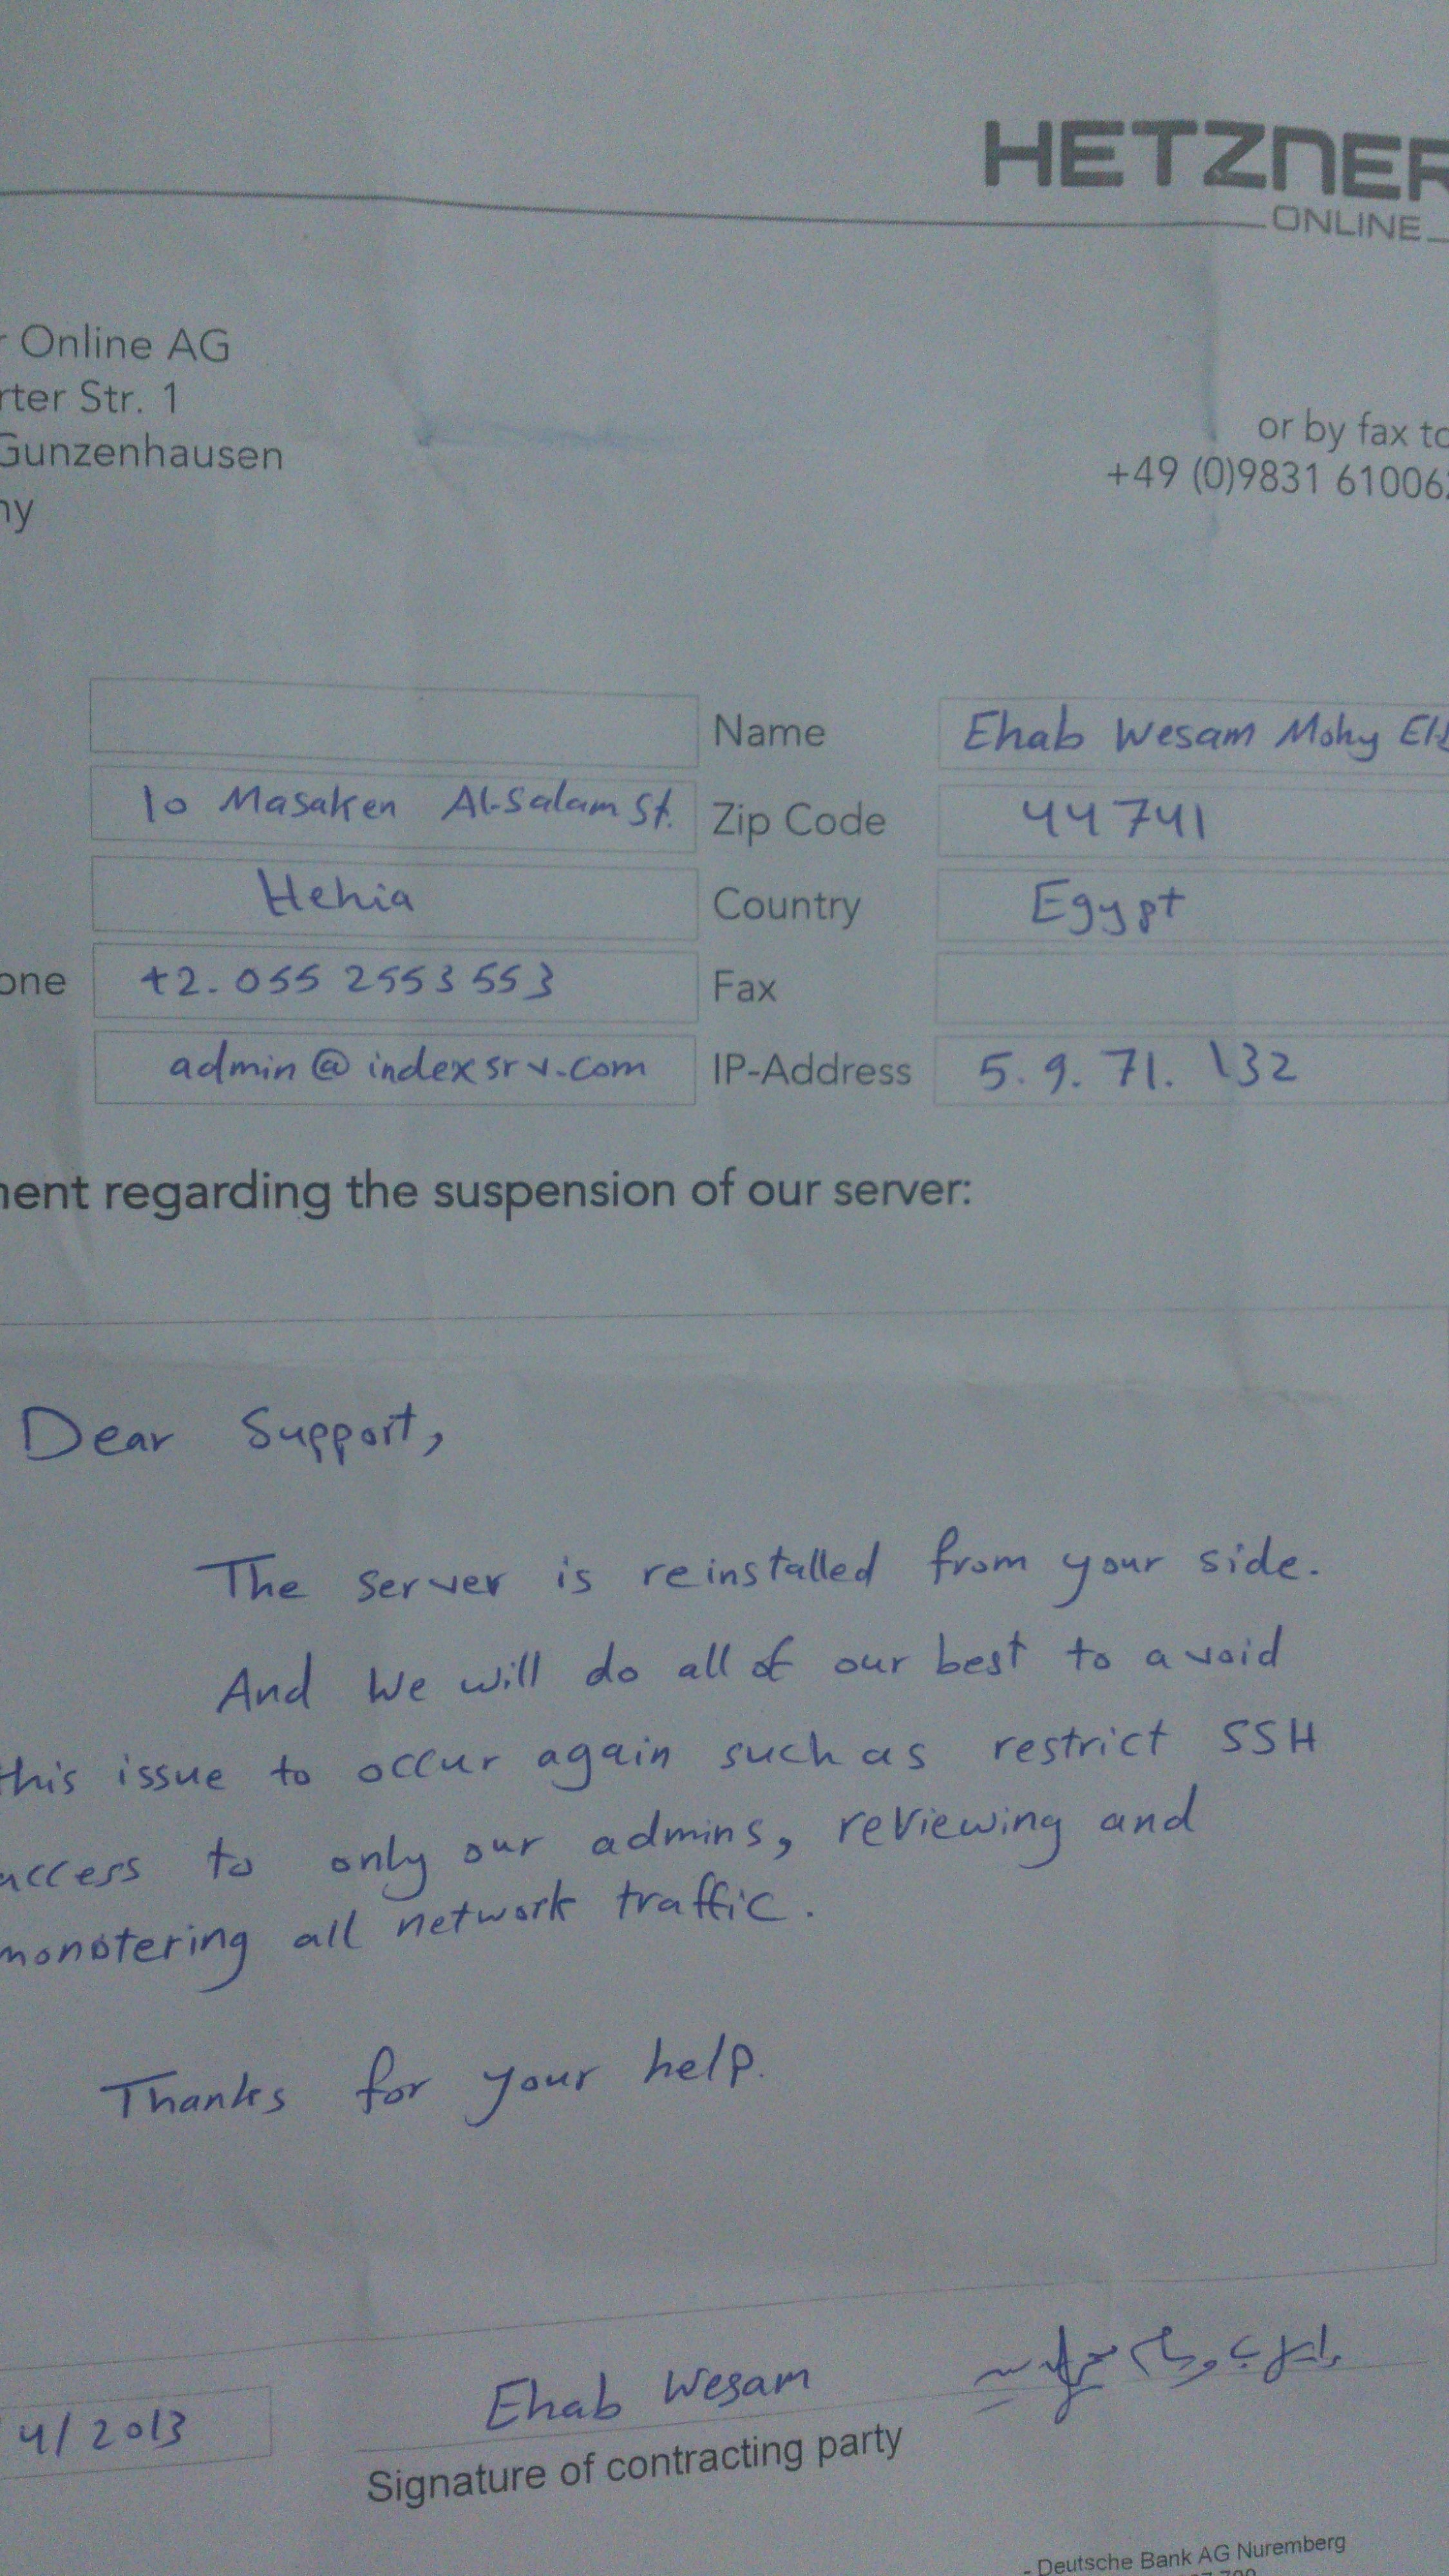 HETZNER
ONLINE
Online AG
rter Str. 1
Gunzenhausen
ny
or by fax to
+49 (0)9831 61006
Name Ehab Wesam Mohy
10 Masaken Al-Salam St. Zip Code 44741
Hehia Country Egypt
one +2. 055 2553 553 Fax
admin@indexsrv.com IP-Address 5.9.71.132
ment regarding the suspension of our server:
Dear Support,
The server is reinstalled from your side.
And We will do all of our best to avoid
this issue to occur again such as restrict SSH
access to only our admins, reviewing and
monotering all network traffic.
Thanks for your help.
4/2013 Ehab Wesam
Signature of contracting party
- Deutsche Bank AG Nuremberg